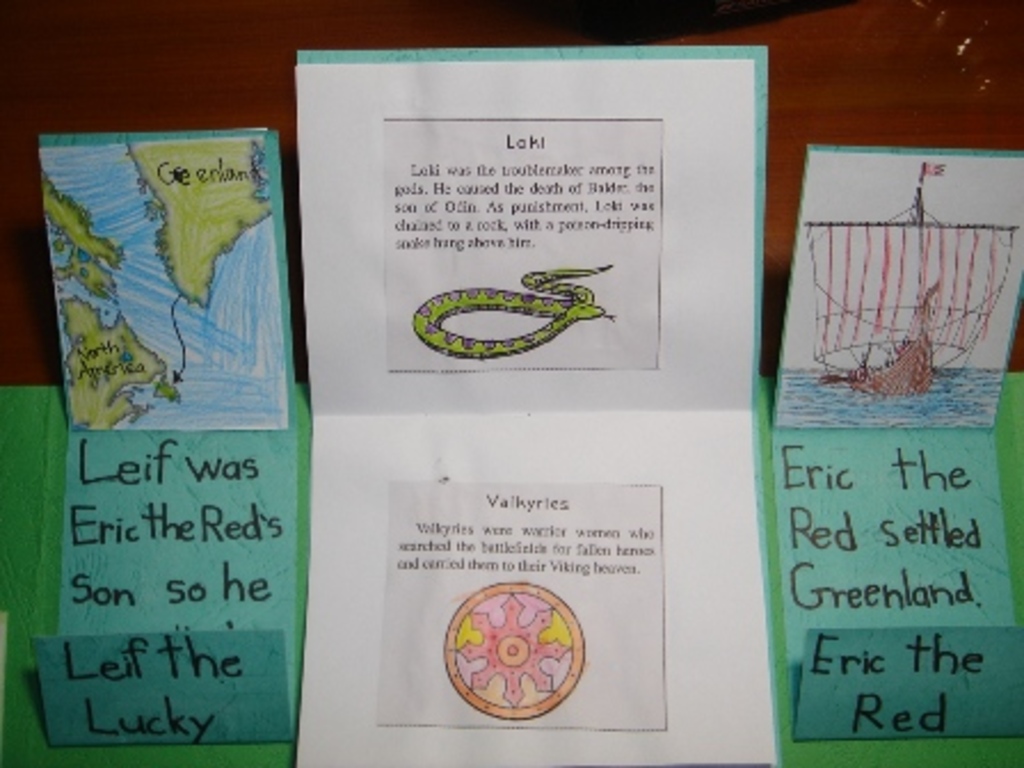 Greenland
North
America
Leif was
Eric the Red's
Son so he
Leif the
Lucky
Loki
Loki was the troublemaker among the
gods. He caused the death of Balder, the
son of Odin. As punishment, Loki was
chained to a rock, with a poison-dripping
snake hung above him.
Valkyries
Valkyries were warrior women who
searched the battlefields for fallen heroes
and carried them to their Viking heaven.
Eric the
Red settled
Greenland.
Eric the
Red